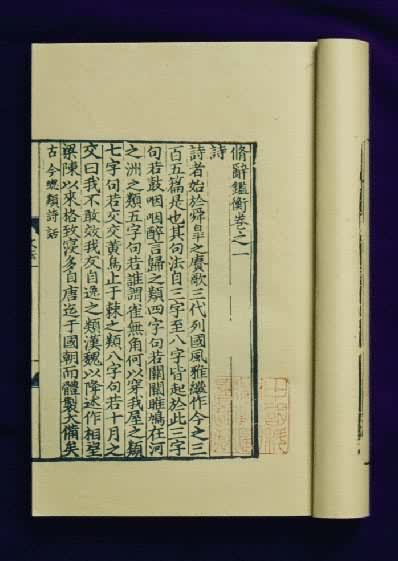 脩辭鑑衡卷之一
詩
詩者始於舜皐之賡歌三代列國風雅繼作今之三
百五篇是也其句法自三字至八字皆起於此三字
句若鼓咽咽醉言歸之類四字句若關關雎鳩在河
之洲之類五字句若誰謂雀無角何以穿我屋之類
七字句若交交黃鳥止于棘之類八字句若十月之
交曰我不敢效我友自逸之類漢魏以降述作相望
梁陳以來格致寖多自唐迄于國朝而體製大備矣
古今總類詩話